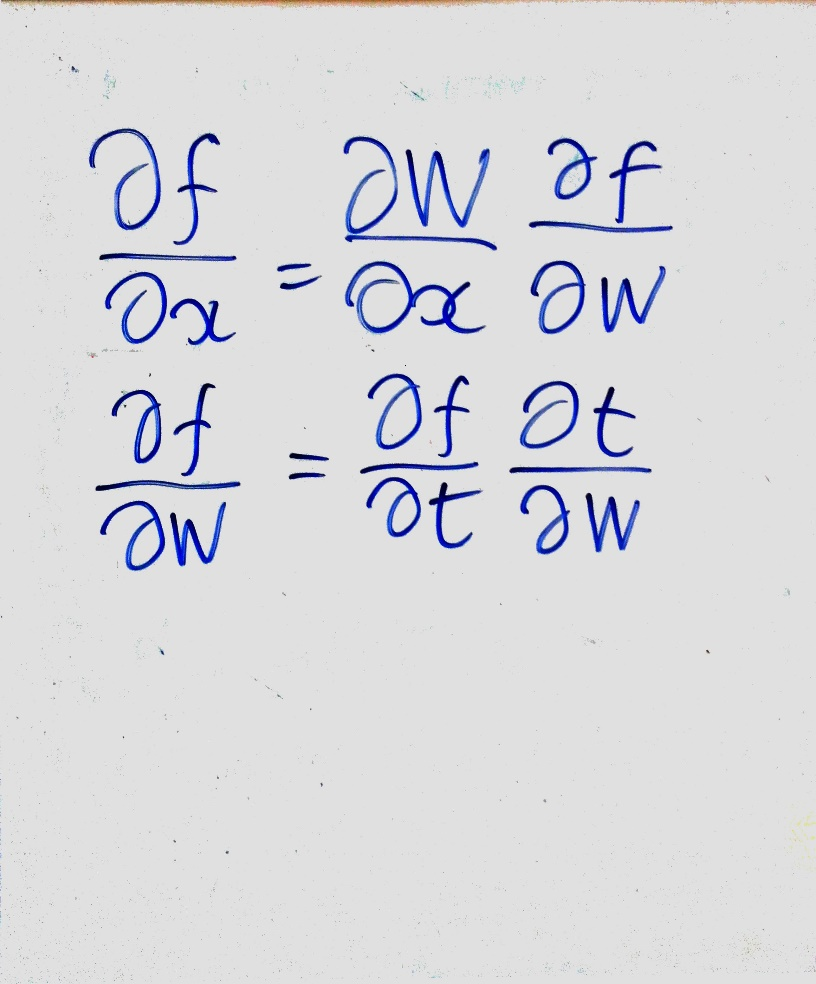 ∂f/∂x = ∂W/∂x ∂f/∂W
∂f/∂W = ∂f/∂t ∂t/∂W